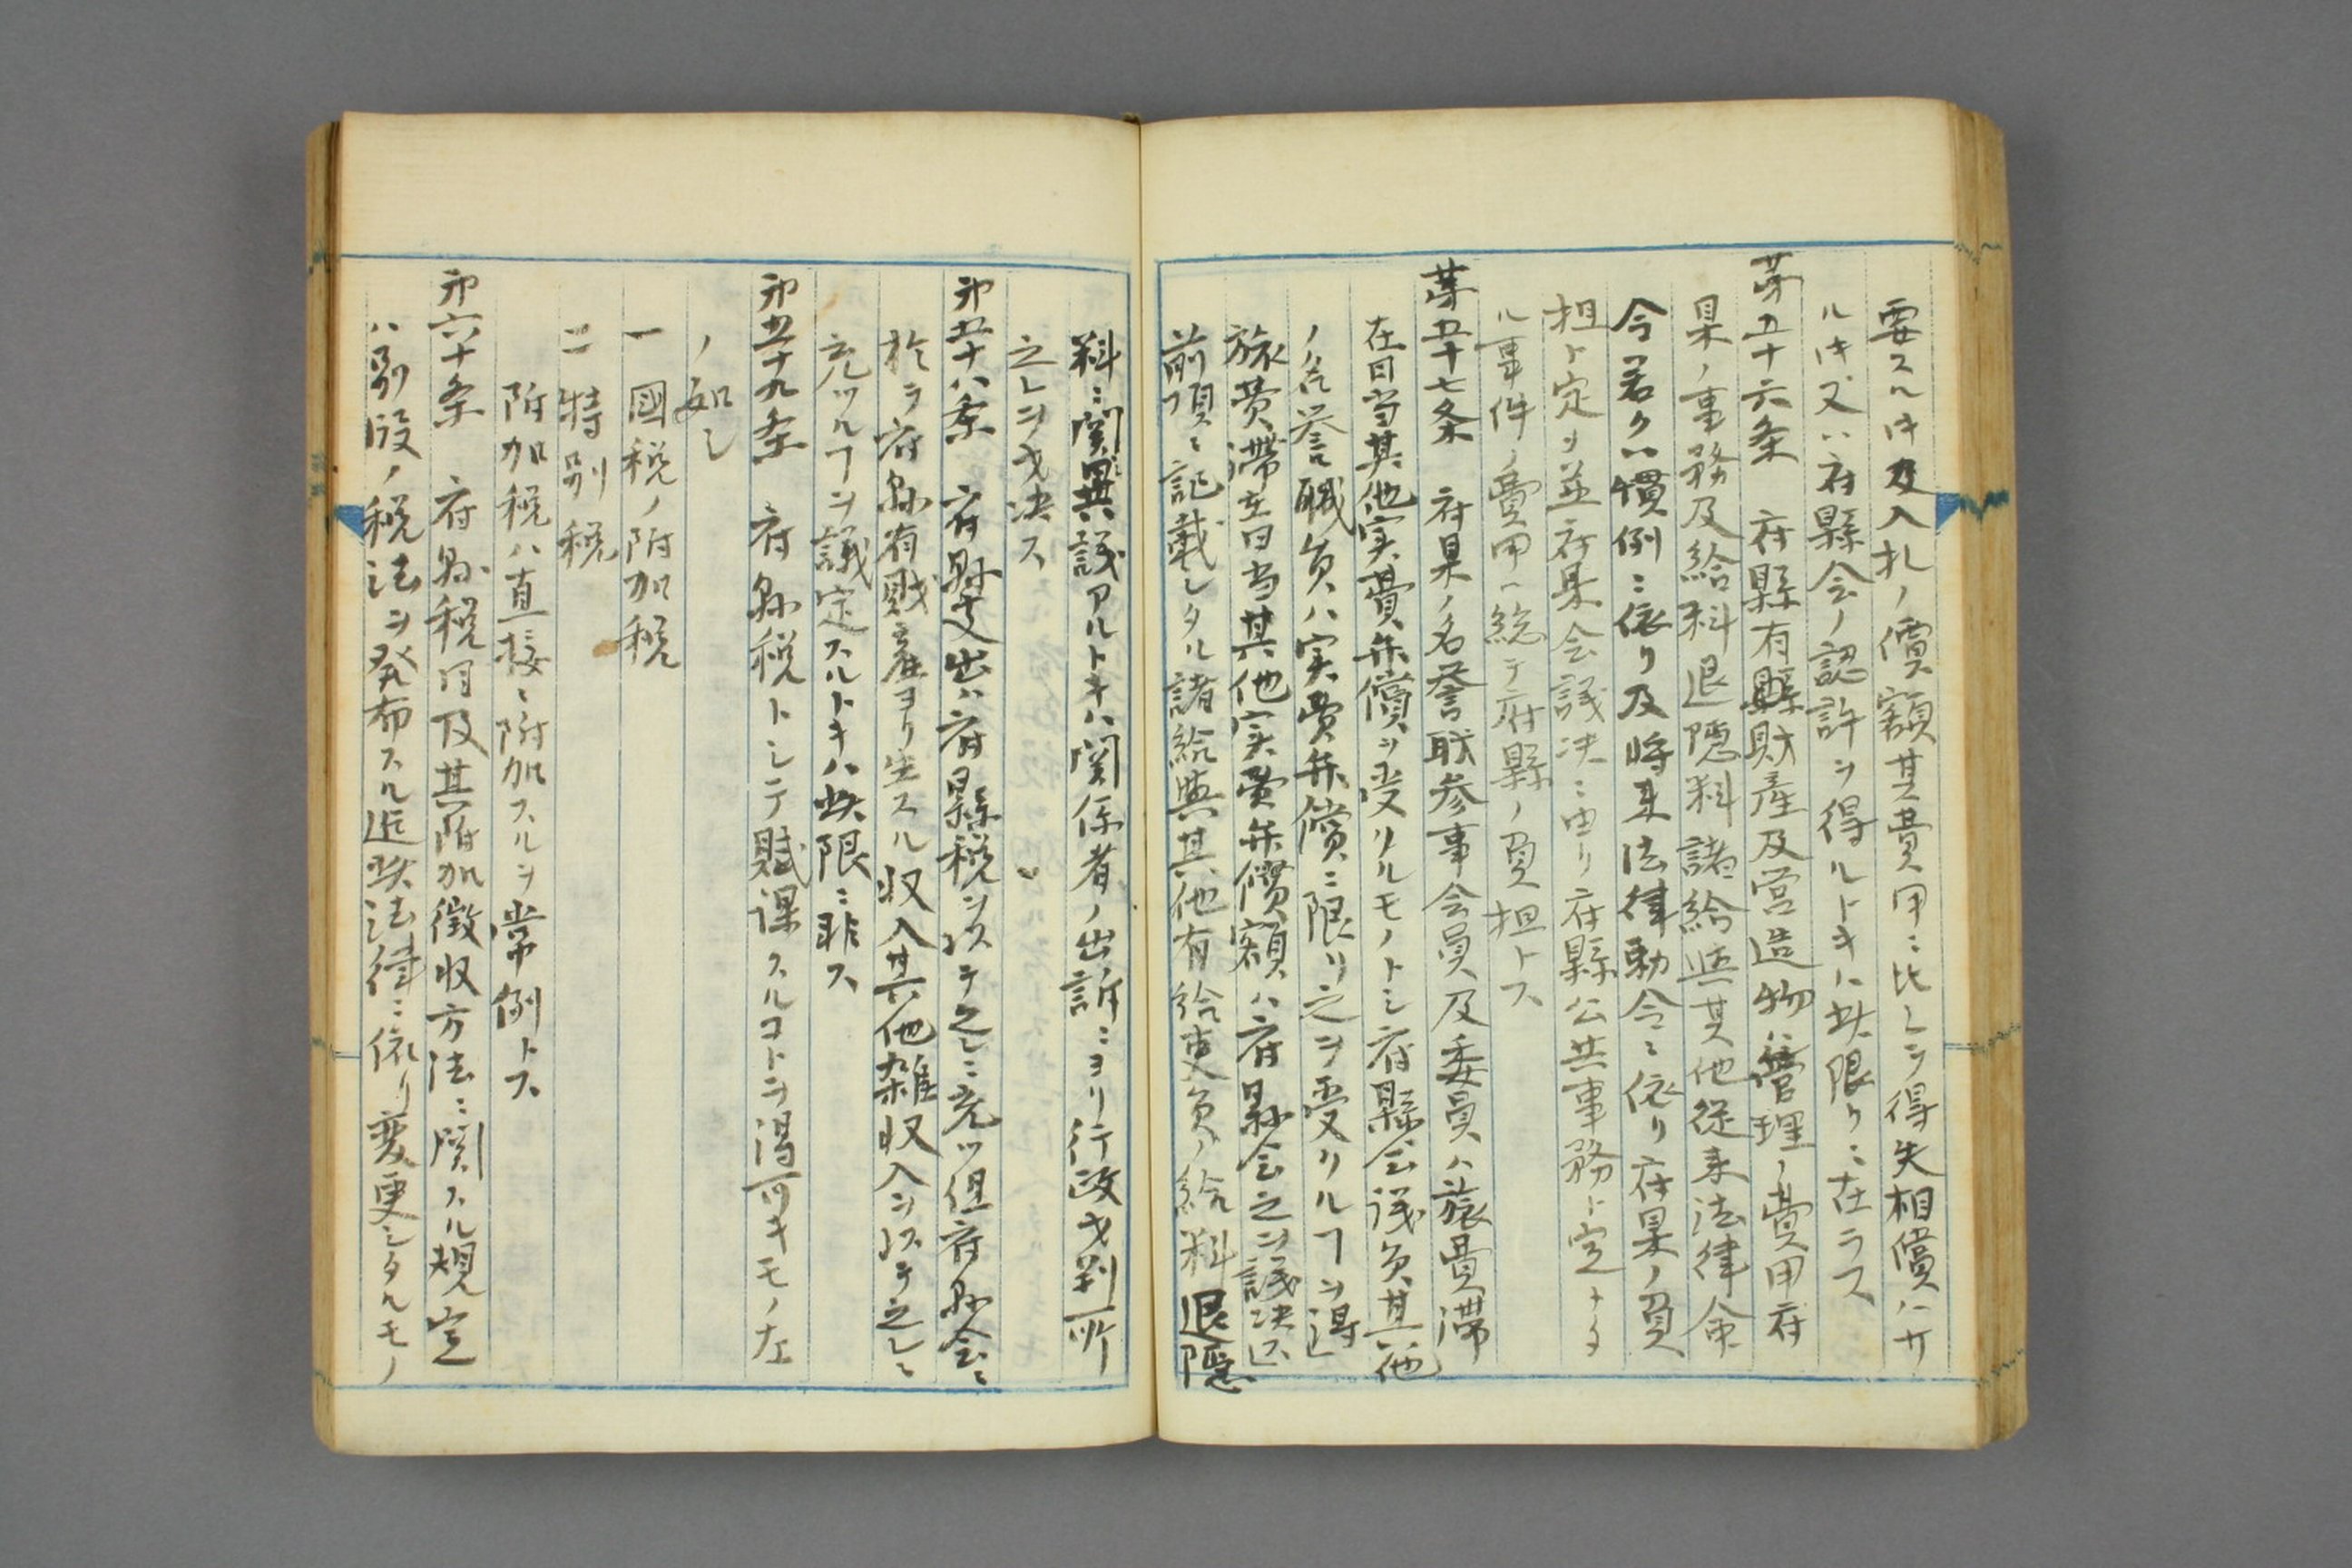 要スルキ及入札ノ價額其費用ニ比シテ得失相償ハサ
ルキ又ハ府縣会ノ認許ヲ得ルトキハ此限リニ在ラス
第五十六条 府縣有縣財産及営造物ハ管理ノ費用府
県ノ事務及給料退隠料諸給与其他従来法律命
令若クハ慣例ニ依リ及将来法律勅令ニ依リ府県ノ負
担ト定メ並府県会議決ニ由リ府縣公共事務ト定メタ
ル事件ノ費用ハ総テ府縣ノ負担トス
第五十七条 府県ノ名誉職参事会員及委員ハ旅費滞
在日当其他実費弁償ヲ受クルモノトシ府縣会議員其他
ノ名誉職員ハ実費弁償ニ限リ之ヲ受クルヿヲ得
旅費滞在日当其他実費弁償額ハ府縣会之ヲ議決ス
前項ニ記載シタル諸給與其他有給吏員ノ給料退隠
料ニ関異議アルトキハ関係者ノ出訴ニヨリ行政裁判所
之レヲ裁決ス
第五十八条 府縣支出ハ府縣税ヲ以テ之レニ充ツ但府縣会ニ
於テ府縣有財産ヨリ生スル収入其他雑収入ヲ以テ之レニ
充ツルヿヲ議定スルトキハ此限ニ非ス
第五十九条 府縣税トシテ賦課スルコトヲ得可キモノ左
ノ如シ
一 國税ノ附加税
二 特別税
附加税ハ直接ニ附加スルヲ常例トス
第六十条 府縣税目及其附加徴収方法ニ関スル規定
ハ別段ノ税法ヲ発布スル迄此法律ニ依リ変更シタルモノ